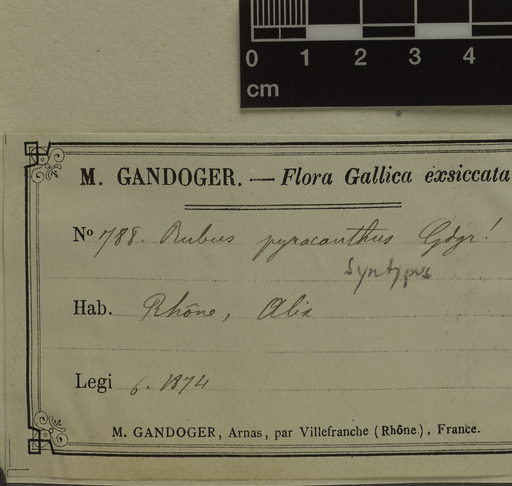 0 1 2 3 4
cm
M. GANDOGER. — Flora Gallica exsiccata
Nº 788. Rubus pyracanthus Gdgr!
Syntypus
Hab. Rhône, Alix
Legi 6. 1874
M. GANDOGER, Arnas, par Villefranche (Rhône), France.